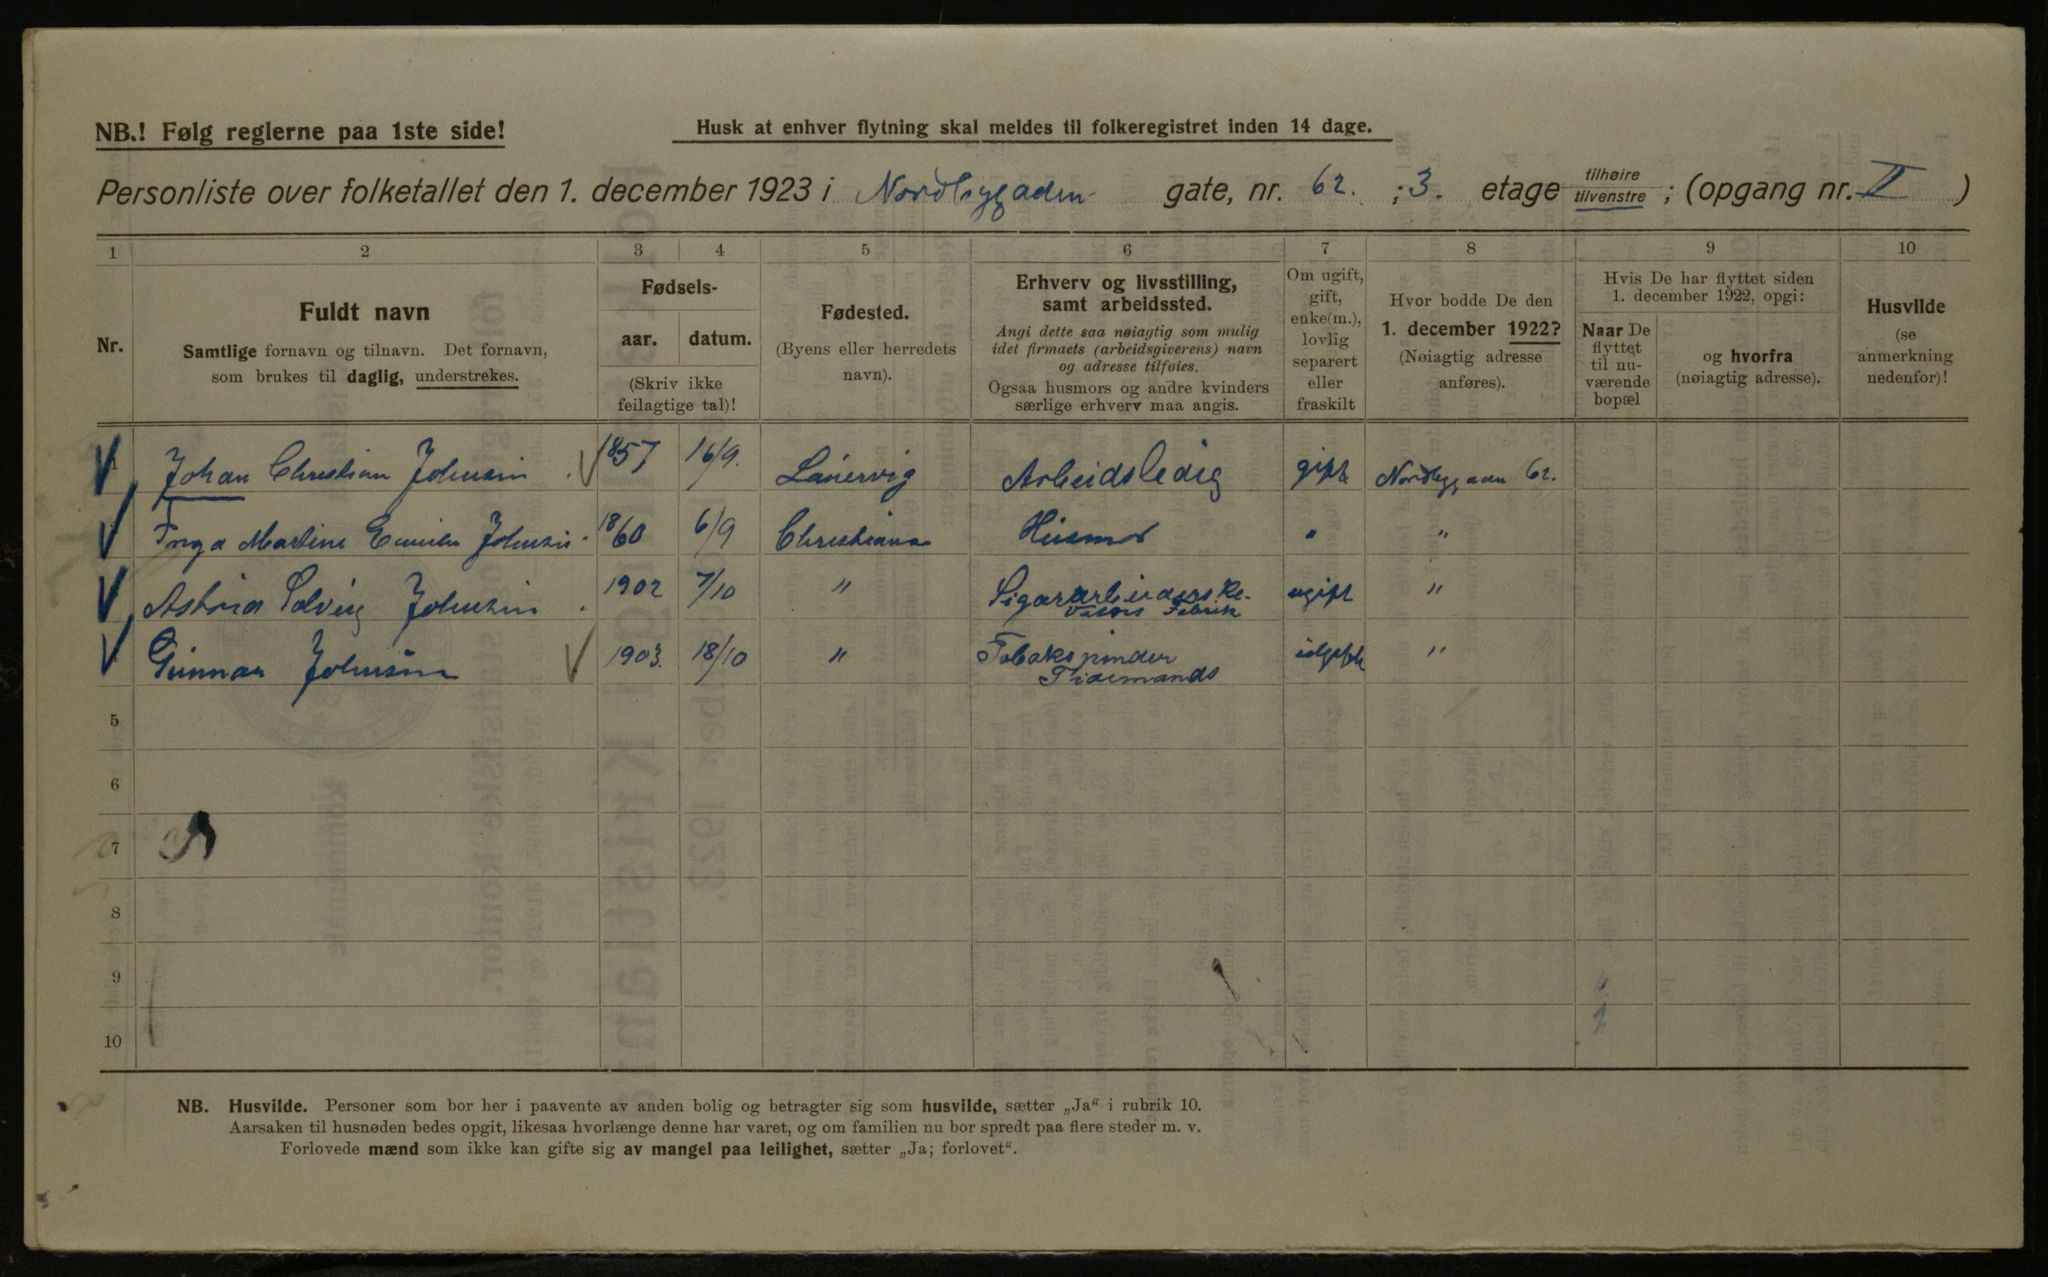 NB.! Følg reglerne paa 1ste side!
Husk at enhver flytning skal meldes til folkeregistret inden 14 dage.
Personliste over folketallet den 1. december 1923 i Nordbygaden gate, nr. 62. ; 3. etage tilhøire tilvenstre ; (opgang nr. II )
1 2 3 4 5 6 7 8 9 10
Nr.
Fuldt navn
Samtlige fornavn og tilnavn. Det fornavn,
som brukes til daglig, understrekes.
Fødsels-
aar. datum.
(Skriv ikke
feilagtige tal)!
Fødested.
(Byens eller herredets
navn).
Erhverv og livsstilling,
samt arbeidssted.
Angi dette saa nøiagtig som mulig
idet firmaets (arbeidsgiverens) navn
og adresse tilføies.
Ogsaa husmors og andre kvinders
særlige erhverv maa angis.
Om ugift,
gift,
enke(m.),
lovlig
separert
eller
fraskilt
Hvor bodde De den
1. december 1922?
(Nøiagtig adresse
anføres).
Hvis De har flyttet siden
1. december 1922, opgi:
Naar De
flyttet
til nu-
værende
bopæl
og hvorfra
(nøiagtig adresse).
Husvilde
(se
anmerkning
nedenfor)!
Johan Christian Johnsen 1857 16/9. Laurvig Arbeidsledig gift Nordbyggaden 62.
Inga Martine Johnsen 1860 6/9 Christiania Husmor " "
Astrid Solveig Johnsen 1902 7/10 " Sigararbeiderske ugift "
Fabrik
Gunnar Johnsen 1903. 18/10 " Tobakspinder ugift "
Tidemands
5
6
7
8
9
10
NB. Husvilde. Personer som bor her i paavente av anden bolig og betragter sig som husvilde, sætter „Ja“ i rubrik 10.
Aarsaken til husnøden bedes opgit, likesaa hvorlænge denne har varet, og om familien nu bor spredt paa flere steder m. v.
Forlovede mænd som ikke kan gifte sig av mangel paa leilighet, sætter „Ja; forlovet“.